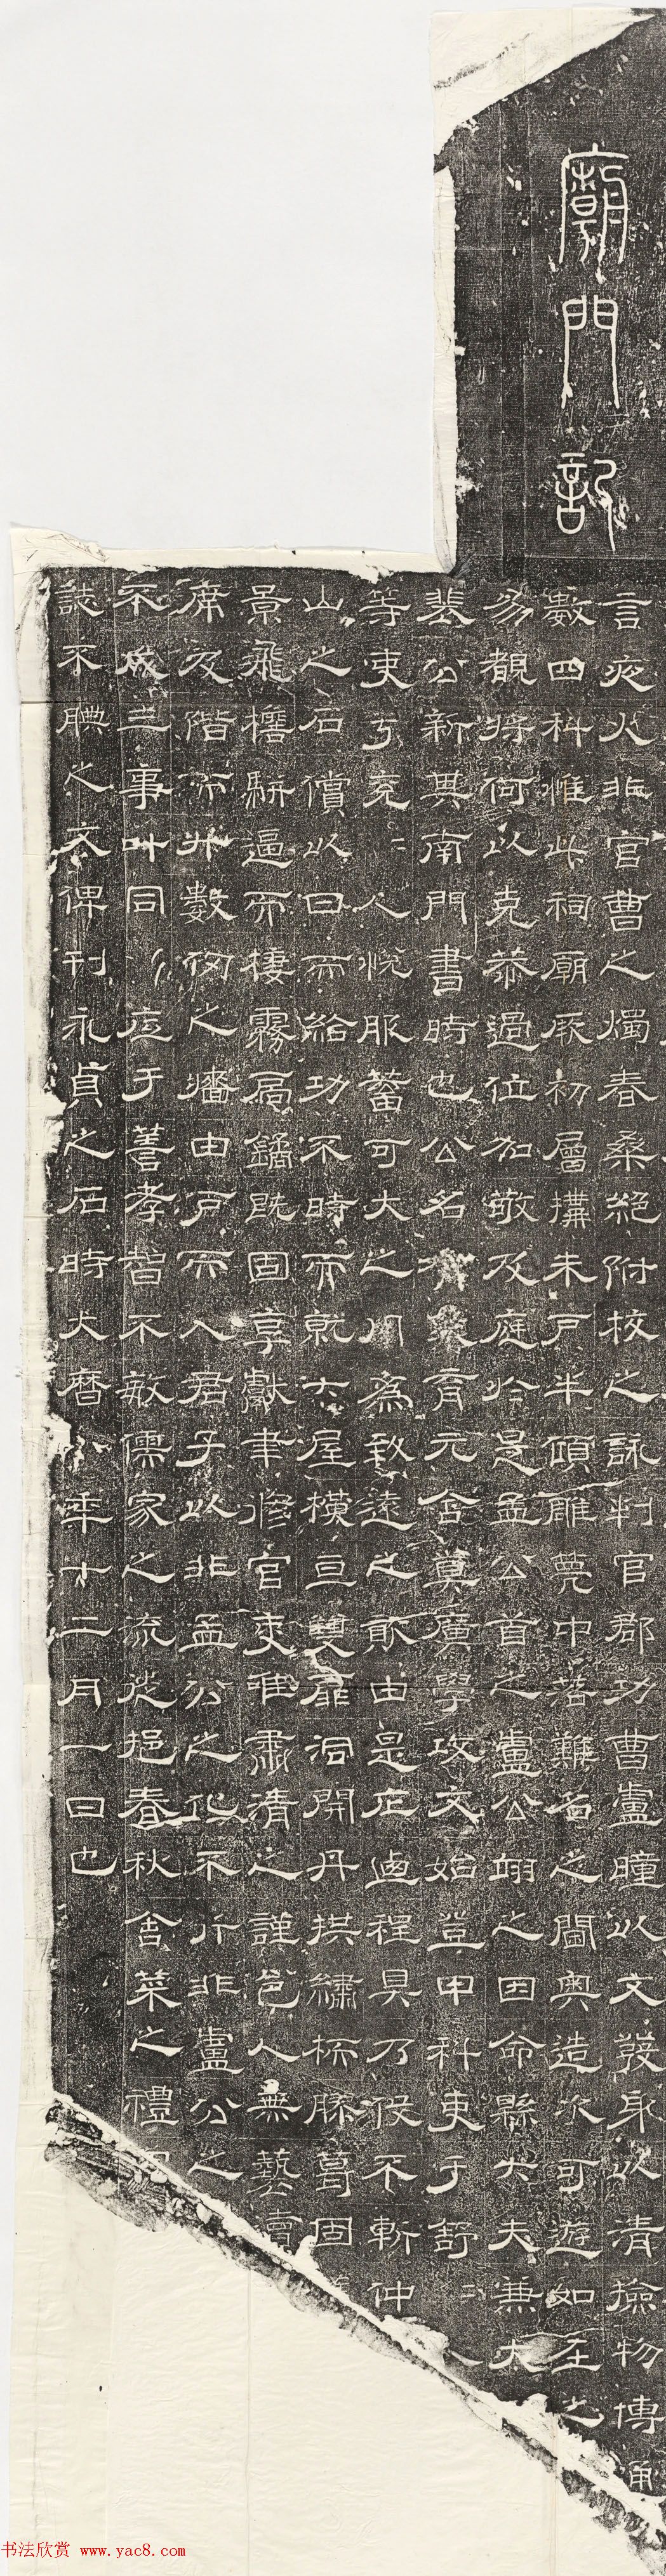 廟門記
言灾火非官曹之燭春桑絕附枝之詠判官郡功曹盧瞳以文發身以清撿物博通
數四科惟此祠廟厥初層構未戶半傾雖莞中落難名之閫奧造次可遊如在之
易覩將何以克恭過位加敬及庭於是孟公首之盧公翊之因命縣大夫兼大
裴公新其南門書時也公名有元舍莫廣學攻文始登甲科吏于舒
等吏于兗人悅服蓄可大之用為致遠之由是庀程具乃役不斬仲
山之石償以日而給功不時而就大屋橫亘雙扉洞開丹拱繡栭勝葛固
景飛檐駢逼而棲霧扃鐍既固享獻聿修官吏唯肅清之謹邑人無藝賣
席及階而升數仞之牆由戶而入君子以非孟公之化不行非盧公之
不成三事叶同應于善孝智不敏儒家之流從挹春秋舍菜之禮
誌不腆之文俾刊永貞之石時大曆八年十二月一日也
书法欣赏 www.yac8.com